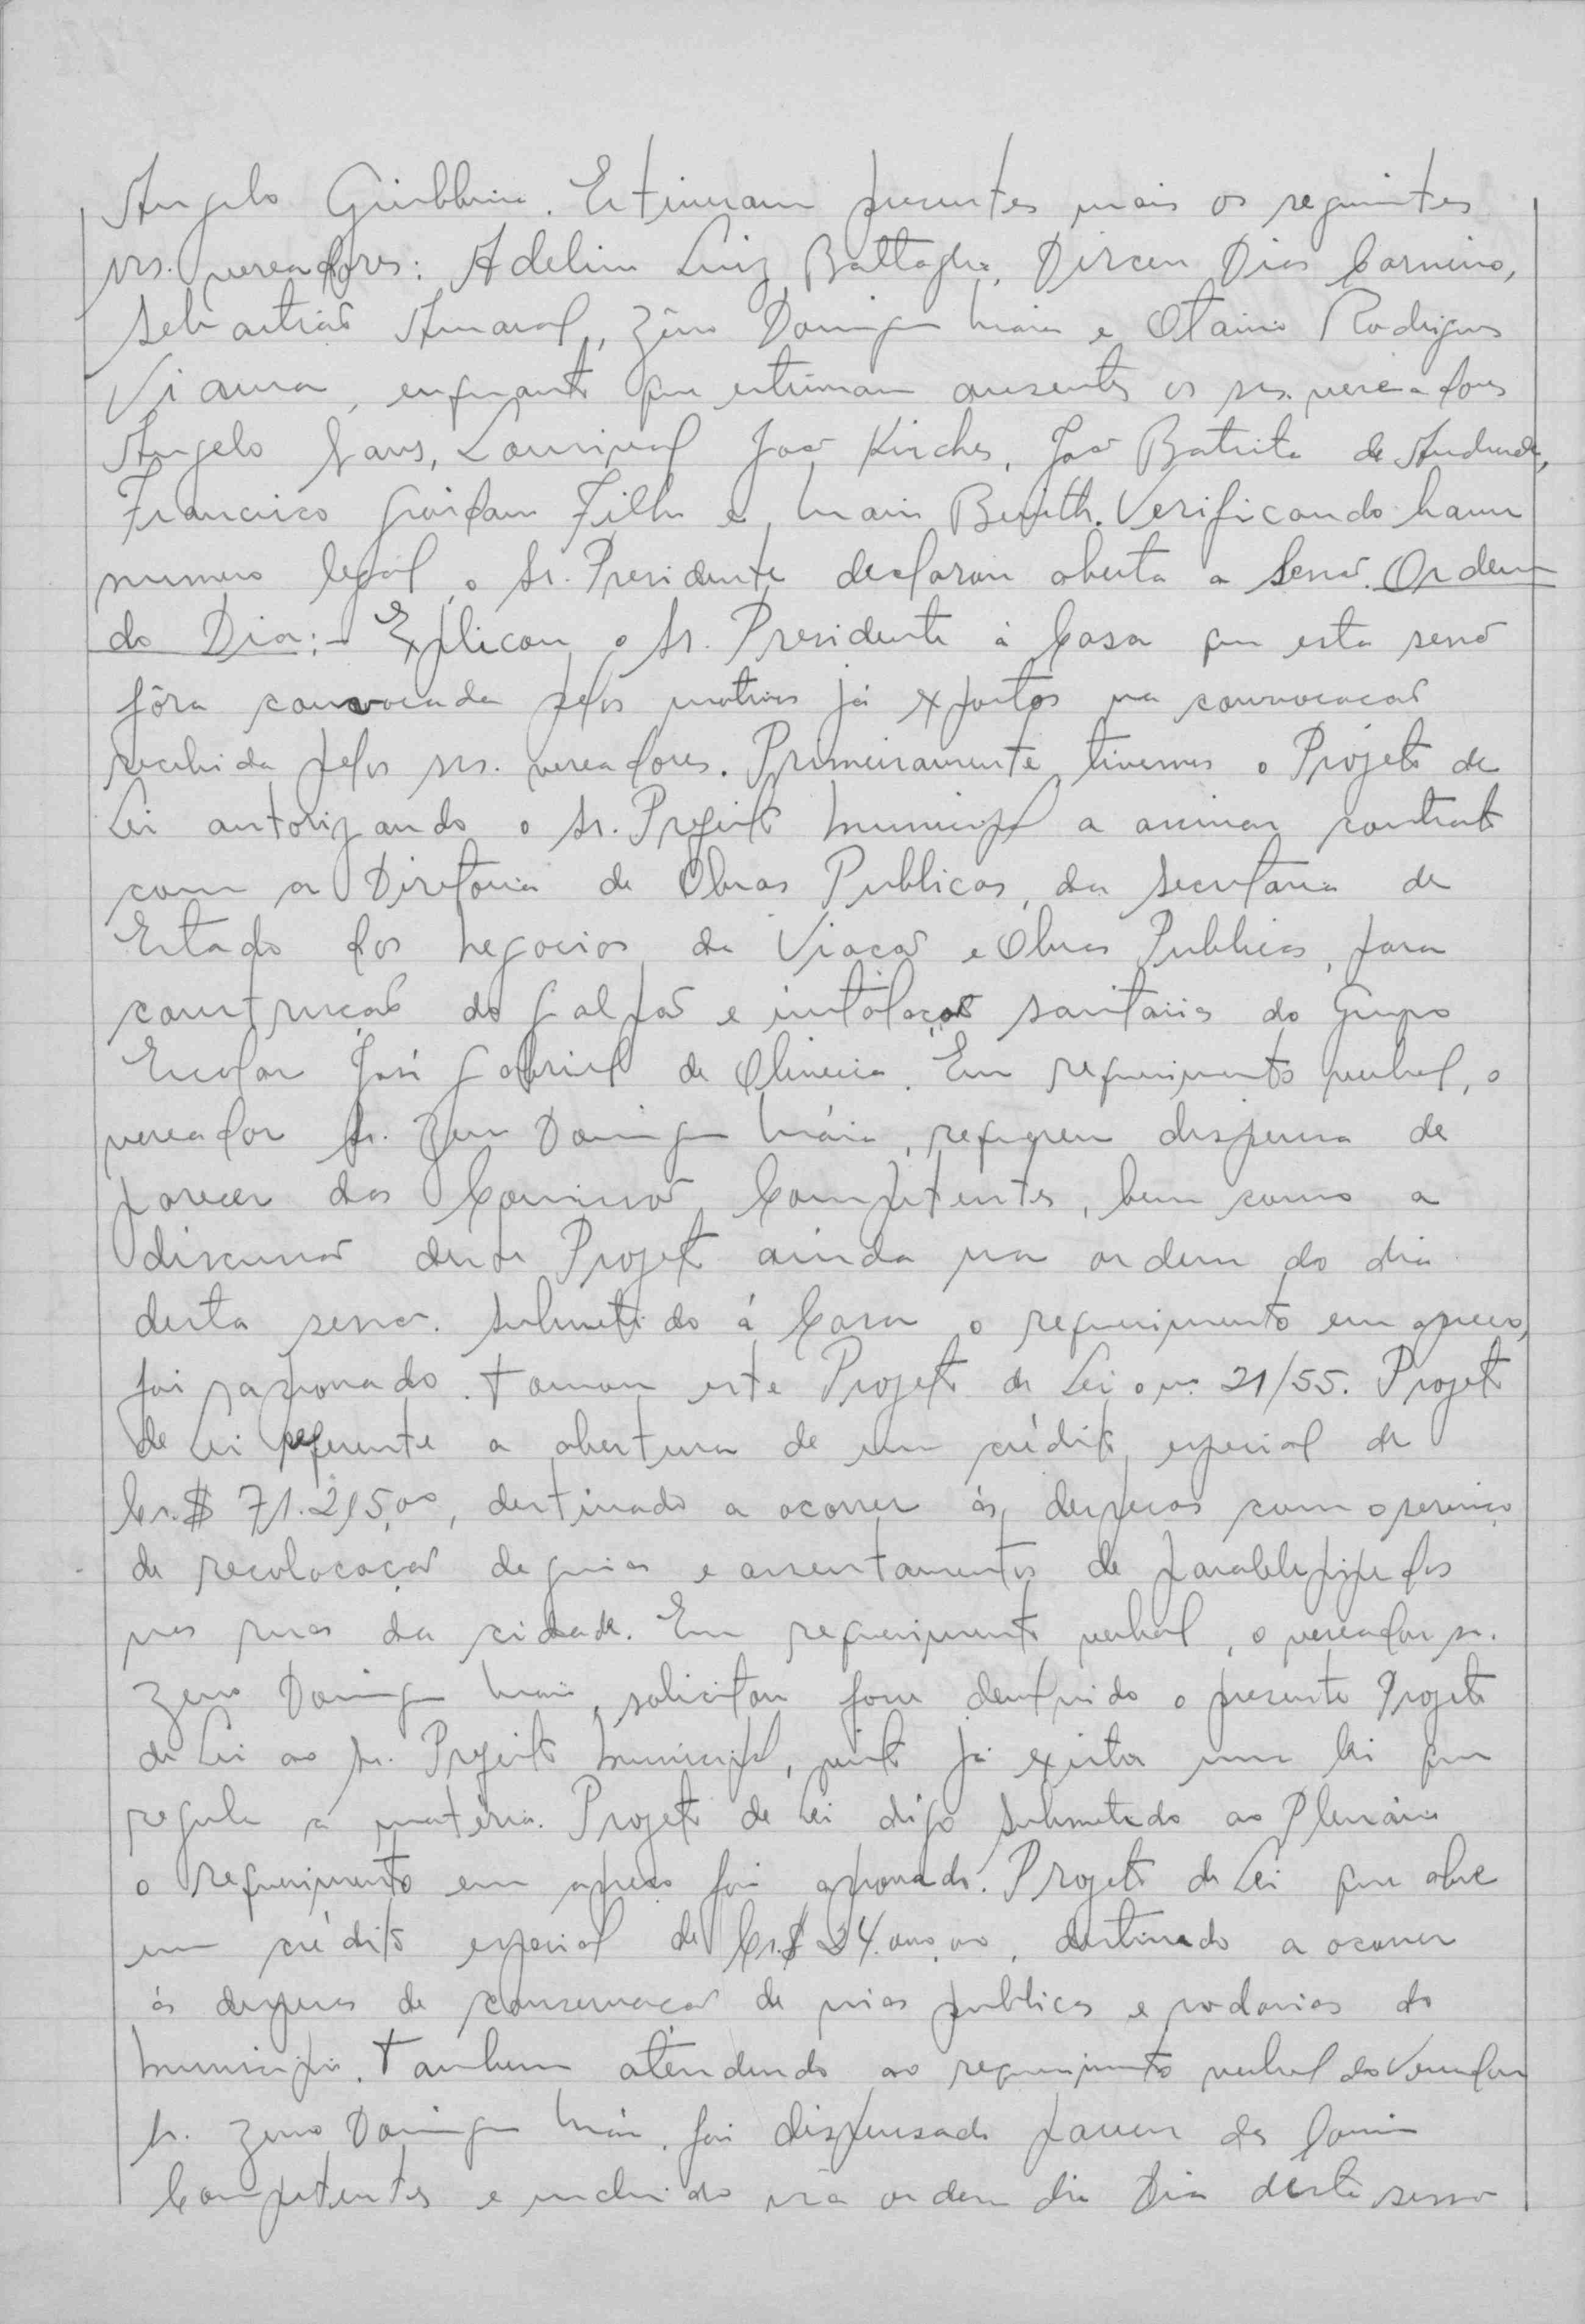 Angelo Giubbina. Estiveram presentes mais os seguintes
srs. vereadores: Adelino Luiz Battaglia, Dirceu Dias Carneiro,
Sebastião Amaral, Zêno Domingues Maia e Otavio Rodrigues
Viana, enquanto que estiveram ausentes os srs. vereadores
Angelo, Lourival João Kirches, João Batista de Andrade,
Francisco Filho e Mario. Verificando haver
numero legal, o Sr. Presidente declarou aberta a Sessão. Ordem
do Dia:- Explicou o Sr. Presidente à Casa que esta sessão
fôra convocada pelos motivos já expostos na convocação
recebida pelos srs. vereadores. Primeiramente tivemos o Projeto de
Lei autorizando o Sr. Prefeito Municipal a assinar contrato
com a Diretoria de Obras Publicas, da Secretaria de
Estado dos Negocios da Viação e Obras Publicas, para
construção do galpão e instalação sanitarias do Grupo
Escolar José Gabriel de Oliveira. Em requerimento verbal, o
vereador Sr. Zeno Domingues Máia, requereu dispensa de
parecer das Comissão Competentes, bem como a
discussão desse Projeto ainda na ordem do dia
desta sessão. Submetido á Casa o requerimento em apreço,
foi aprovado. Tomou este Projeto de Lei o nº 21/55. Projeto
de Lei referente a abertura de um crédito especial de
Cr.$ 71.215,00, destinado a ocorrer ás despesas com o serviço
de recolocação de guias e assentamentos de paralelepipedos
nas ruas da cidade. Em requerimento verbal, o vereador sr.
Zeno Domingues Maia, solicitou fosse devolvido o presente Projeto
de Lei ao Sr. Prefeito Municipal, visto já existir uma lei que
regula a matéria. Projeto de Lei digo Submetido ao Plenário
o requerimento em apreço foi aprovado. Projeto de Lei que abre
um crédito especial de Cr.$ 24.000,00, destinado a ocorrer
ás despesas de conservação de vias publicas e rodovias do
Municipio. Tambem atendendo ao requerimento verbal do Vereador
Sr. Zeno Domingues Máia, foi dispensado parecer das
Competentes e incluido na ordem do Dia desta sessão